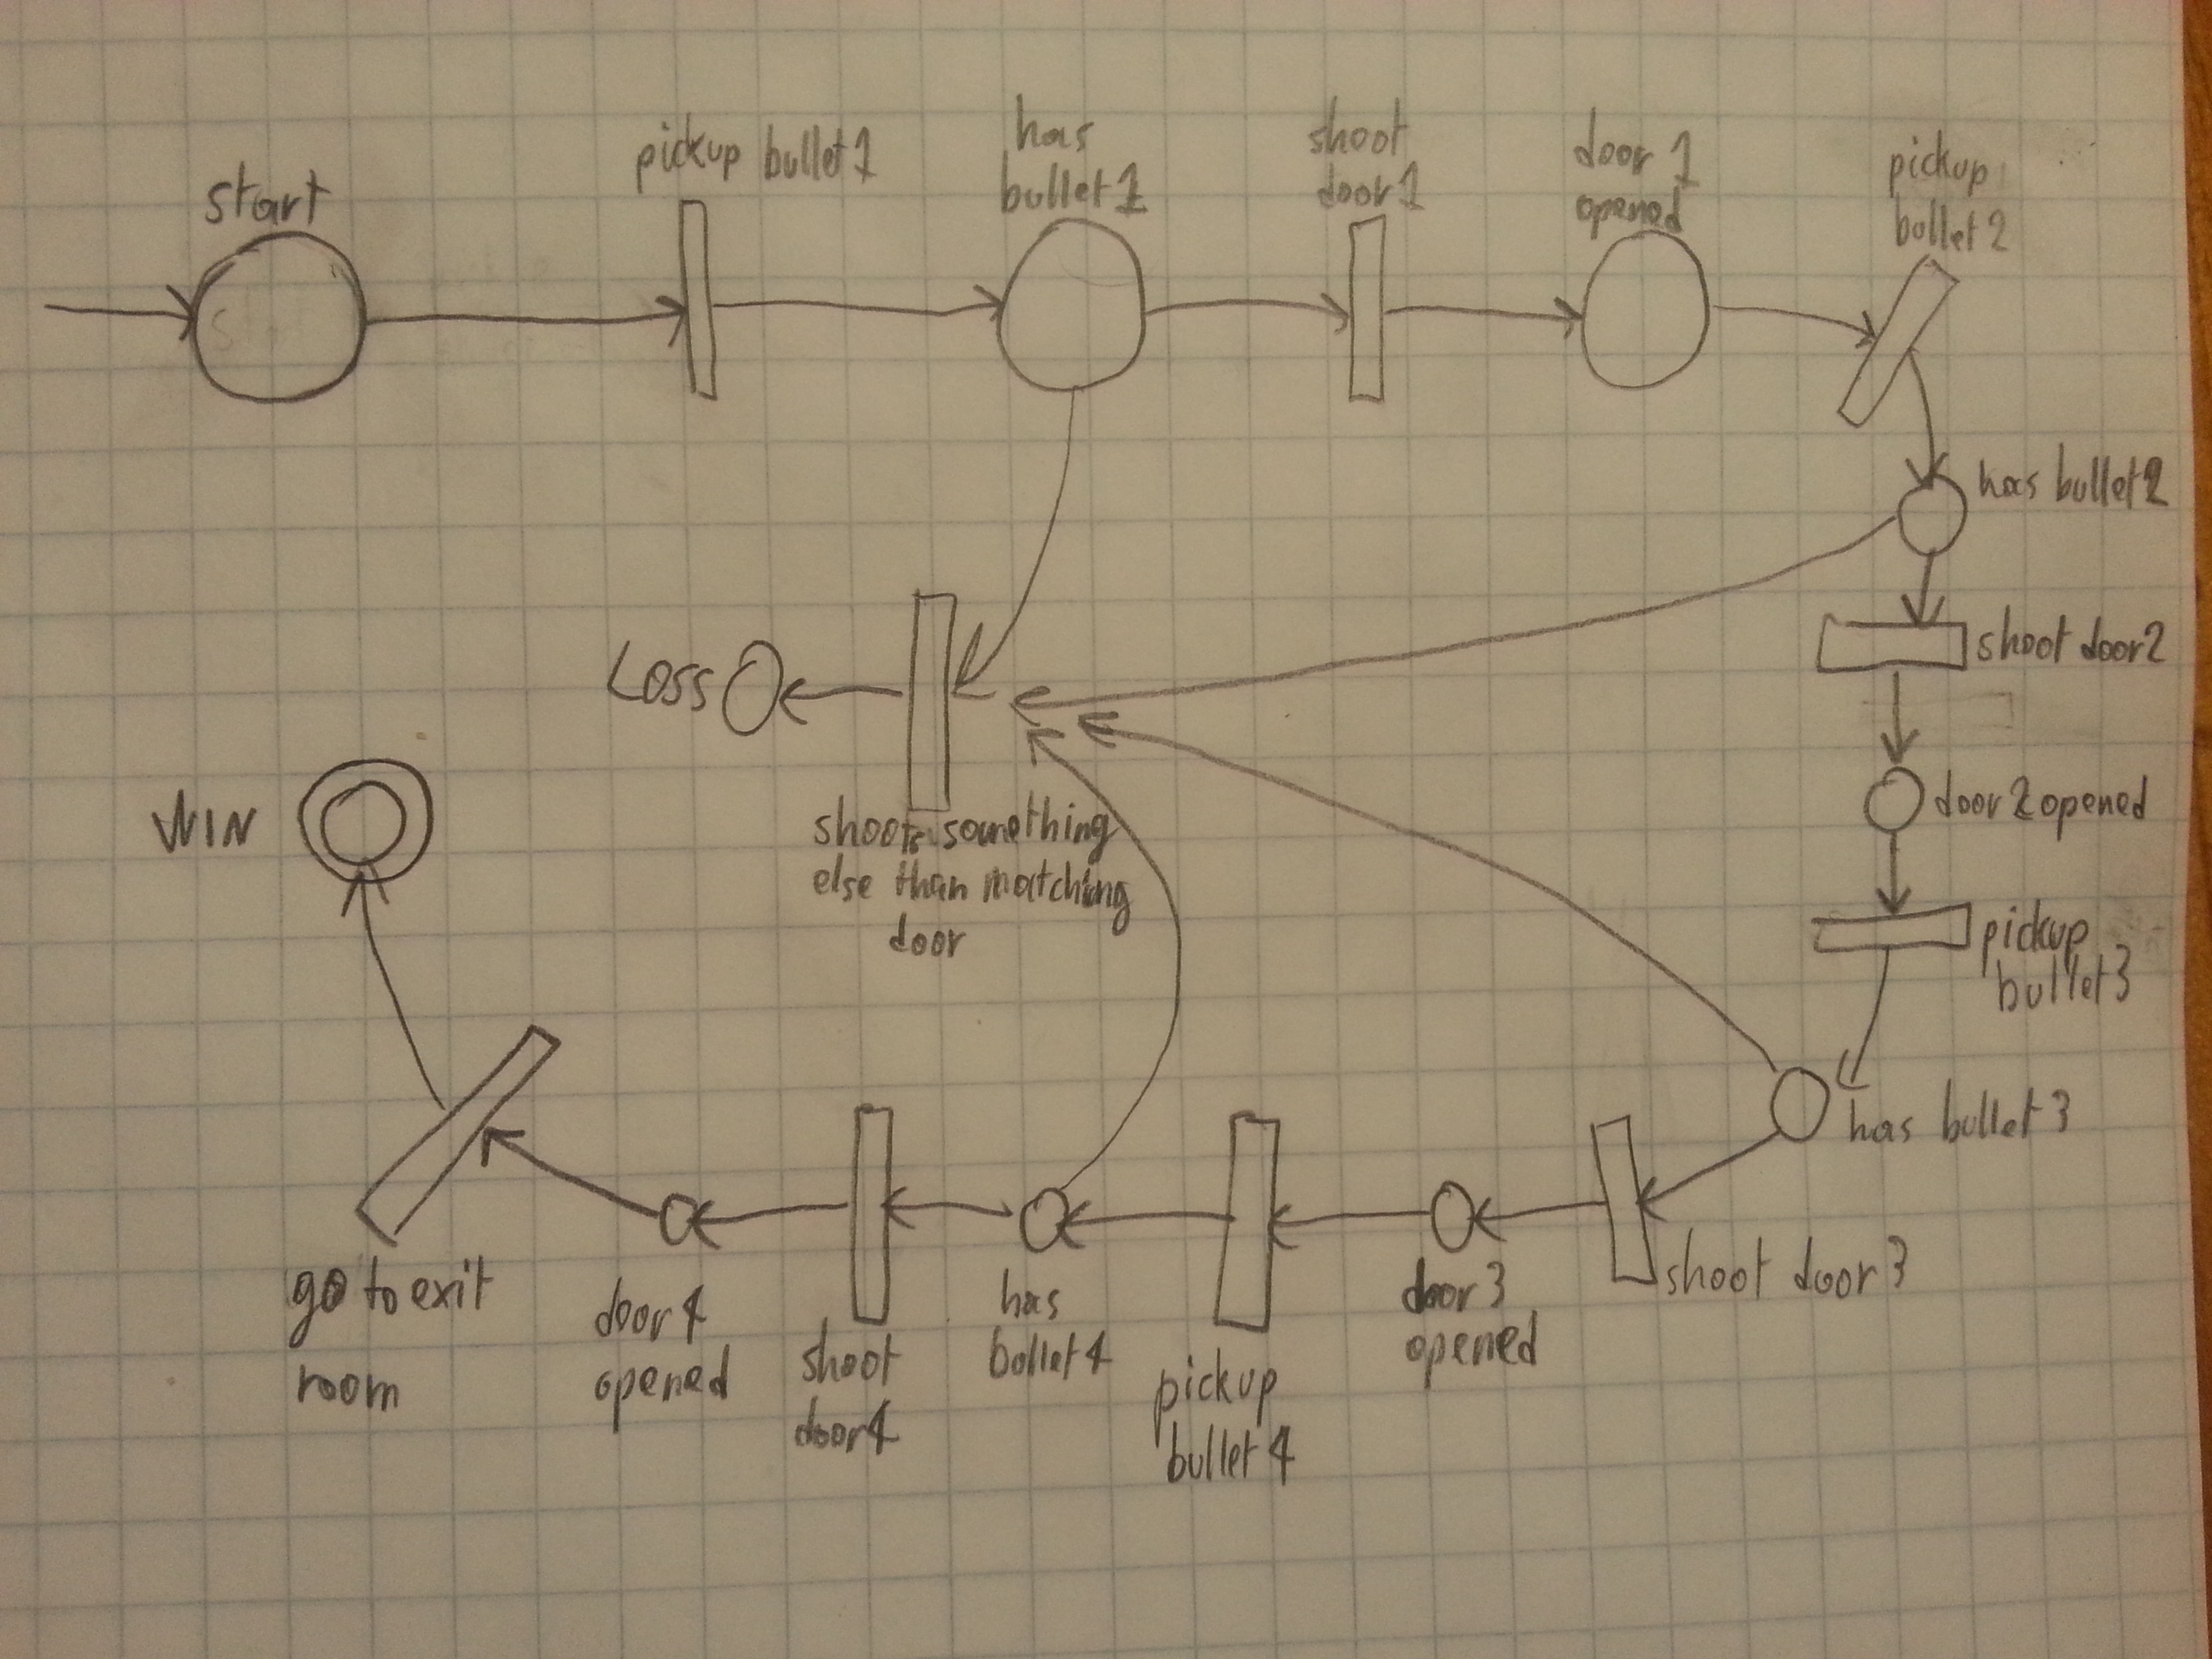 start
pickup bullet1
has
bullet1
shoot
door1
door 1
opened
pickup
bullet2
has bullet2
shoot door2
door2opened
pickup
bullet3
has bullet3
shoot door3
door3
opened
pickup
bullet4
has
bullet4
shoot
door4
door4
opened
go to exit
room
WIN
Loss
shoot something
else than matching
door